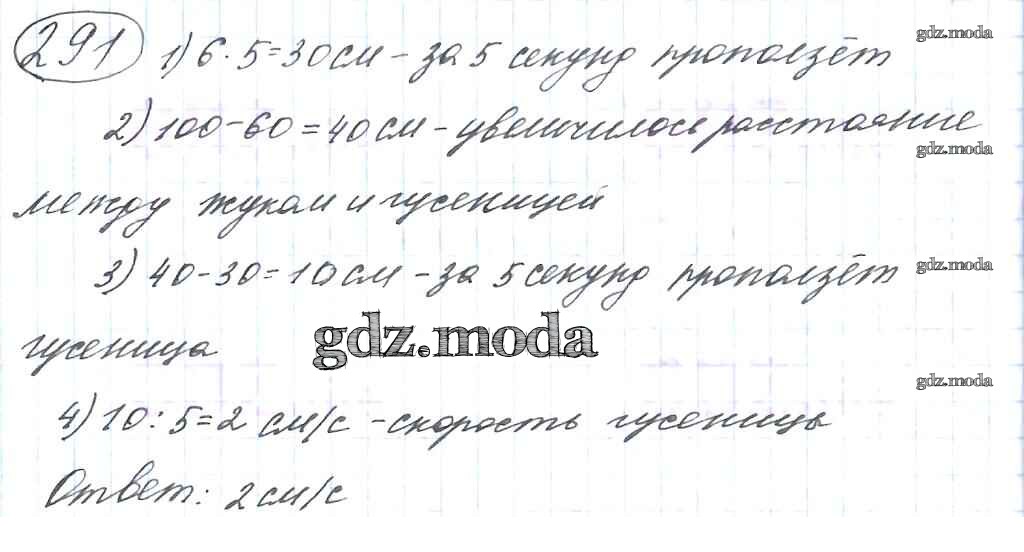 291 1) 6·5=30 см – за 5 секунд проползёт
gdz.moda
2) 100-60=40 см – увеличилось расстояние
gdz.moda
между жуком и гусеницей
3) 40-30=10 см – за 5 секунд проползёт
gdz.moda
гусеница
gdz.moda
gdz.moda
4) 10:5=2 см/с – скорость гусеницы
Ответ: 2 см/с